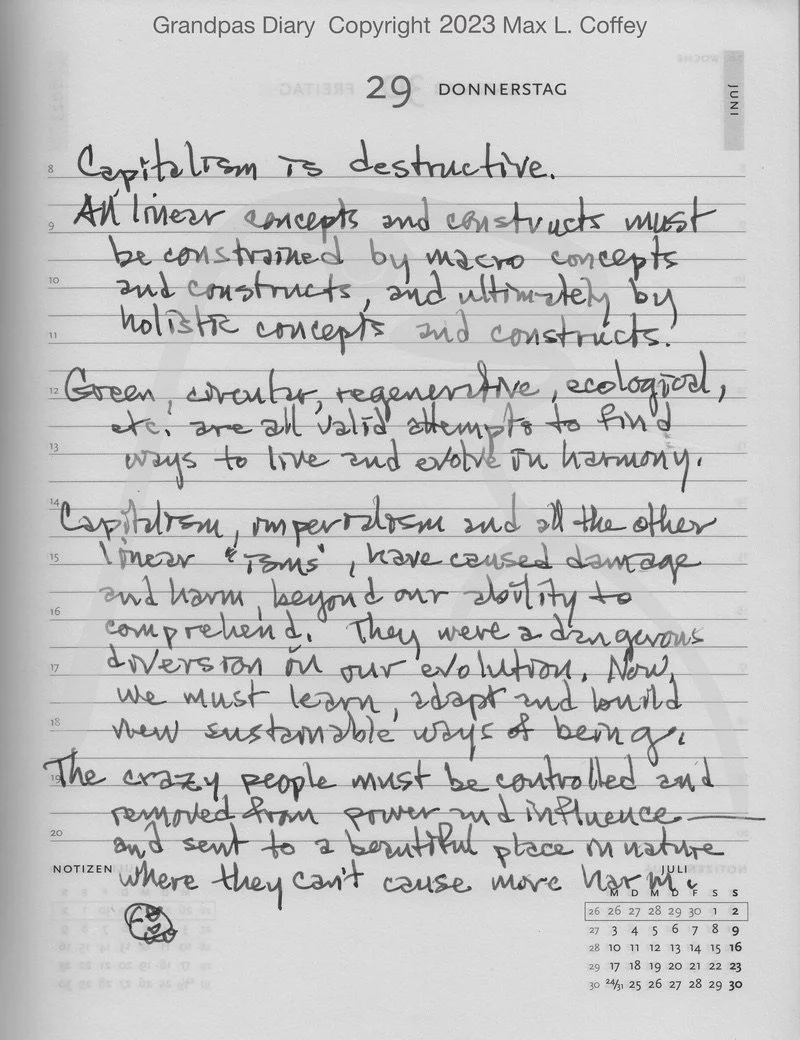 Grandpas Diary Copyright 2023 Max L. Coffey
29 DONNERSTAG
JUNI
8 Capitalism is destructive.
9 All linear concepts and constructs must
be constrained by macro concepts
10 and constructs, and ultimately by
11 holistic concepts and constructs.
12 Green, circular, regenerative, ecological,
etc. are all valid attempts to find
13 ways to live and evolve in harmony.
14 Capitalism, imperialism and all the other
15 linear "isms", have caused damage
and harm, beyond our ability to
16 comprehend. They were a dangerous
17 diversion in our evolution. Now,
we must learn, adapt and build
18 new sustainable ways of being.
19 The crazy people must be controlled and
removed from power and influence
20 and sent to a beautiful place in nature
NOTIZEN where they can't cause more harm.
JULI
M D M D F S S
26 26 27 28 29 30 1 2
27 3 4 5 6 7 8 9
28 10 11 12 13 14 15 16
29 17 18 19 20 21 22 23
30 24/31 25 26 27 28 29 30